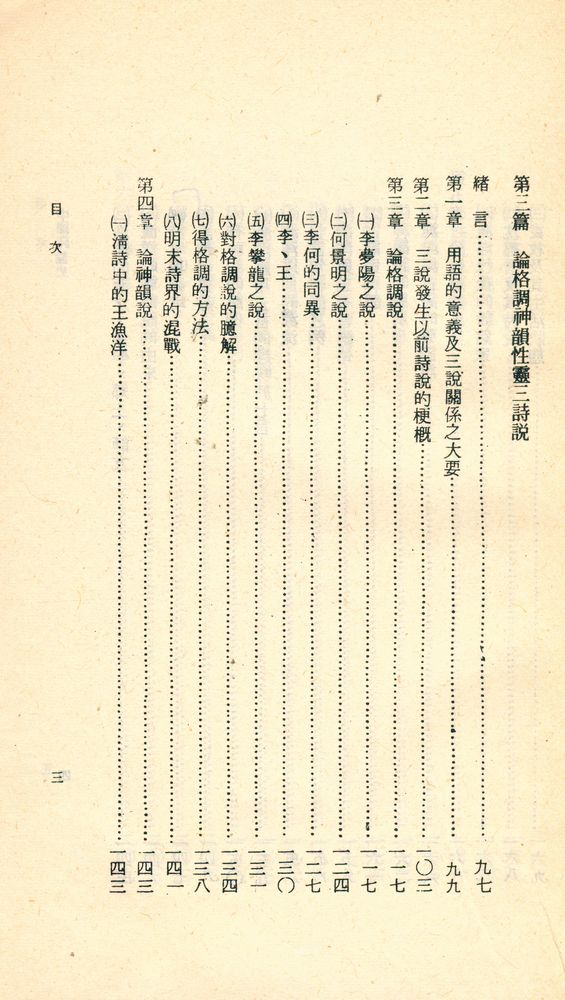 第三篇　論格調神韻性靈三詩説
緒　言……九七
第一章　用語的意義及三說關係之大要……九九
第二章　三說發生以前詩說的梗概……一〇三
第三章　論格調說……一一七
㈠李夢陽之說……一一七
㈡何景明之說……一二四
㈢李何的同異……一二七
㈣李、王……一三〇
㈤李攀龍之說……一三一
㈥對格調說的臆解……一三四
㈦得格調的方法……一三八
㈧明末詩界的混戰……一四一
第四章　論神韻說……一四三
㈠清詩中的王漁洋……一四三
目　次
三